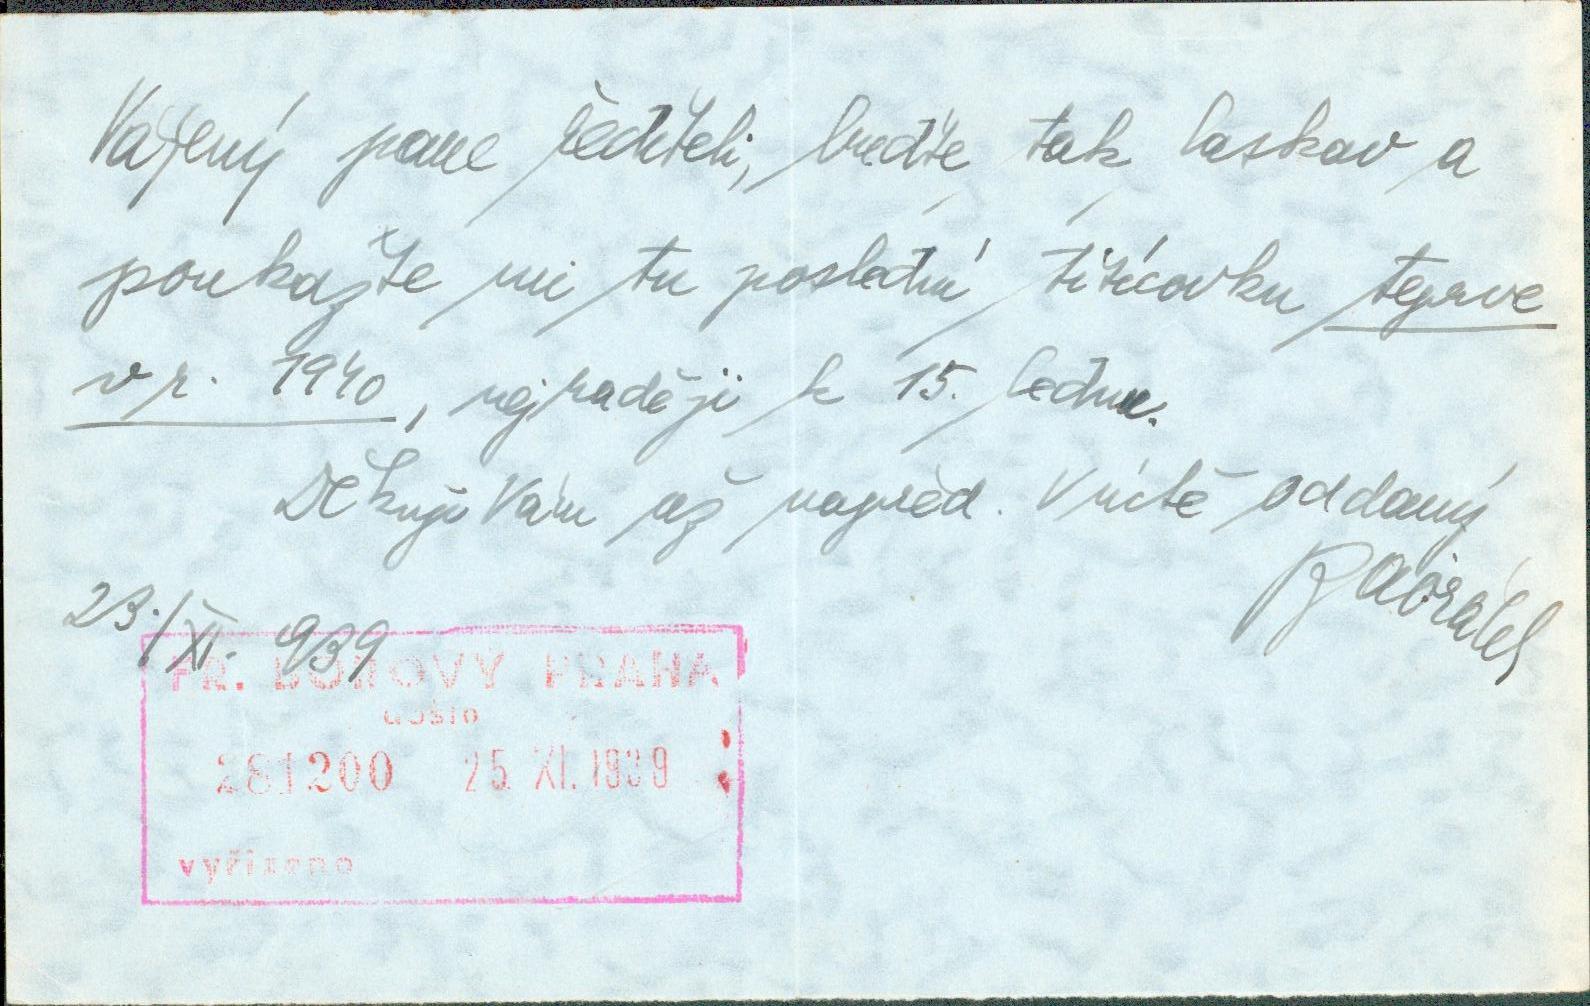 Vážený pane řediteli, buďte tak laskav a
poukažte mi tu poslední tisícovku teprve
v r. 1940, nejraději k 15. lednu.
Děkuji Vám už napřed. V úctě oddaný
23./XI. 939
FR. BOROVÝ PRAHA
došlo
281200 25. XI. 1939
vyřízeno